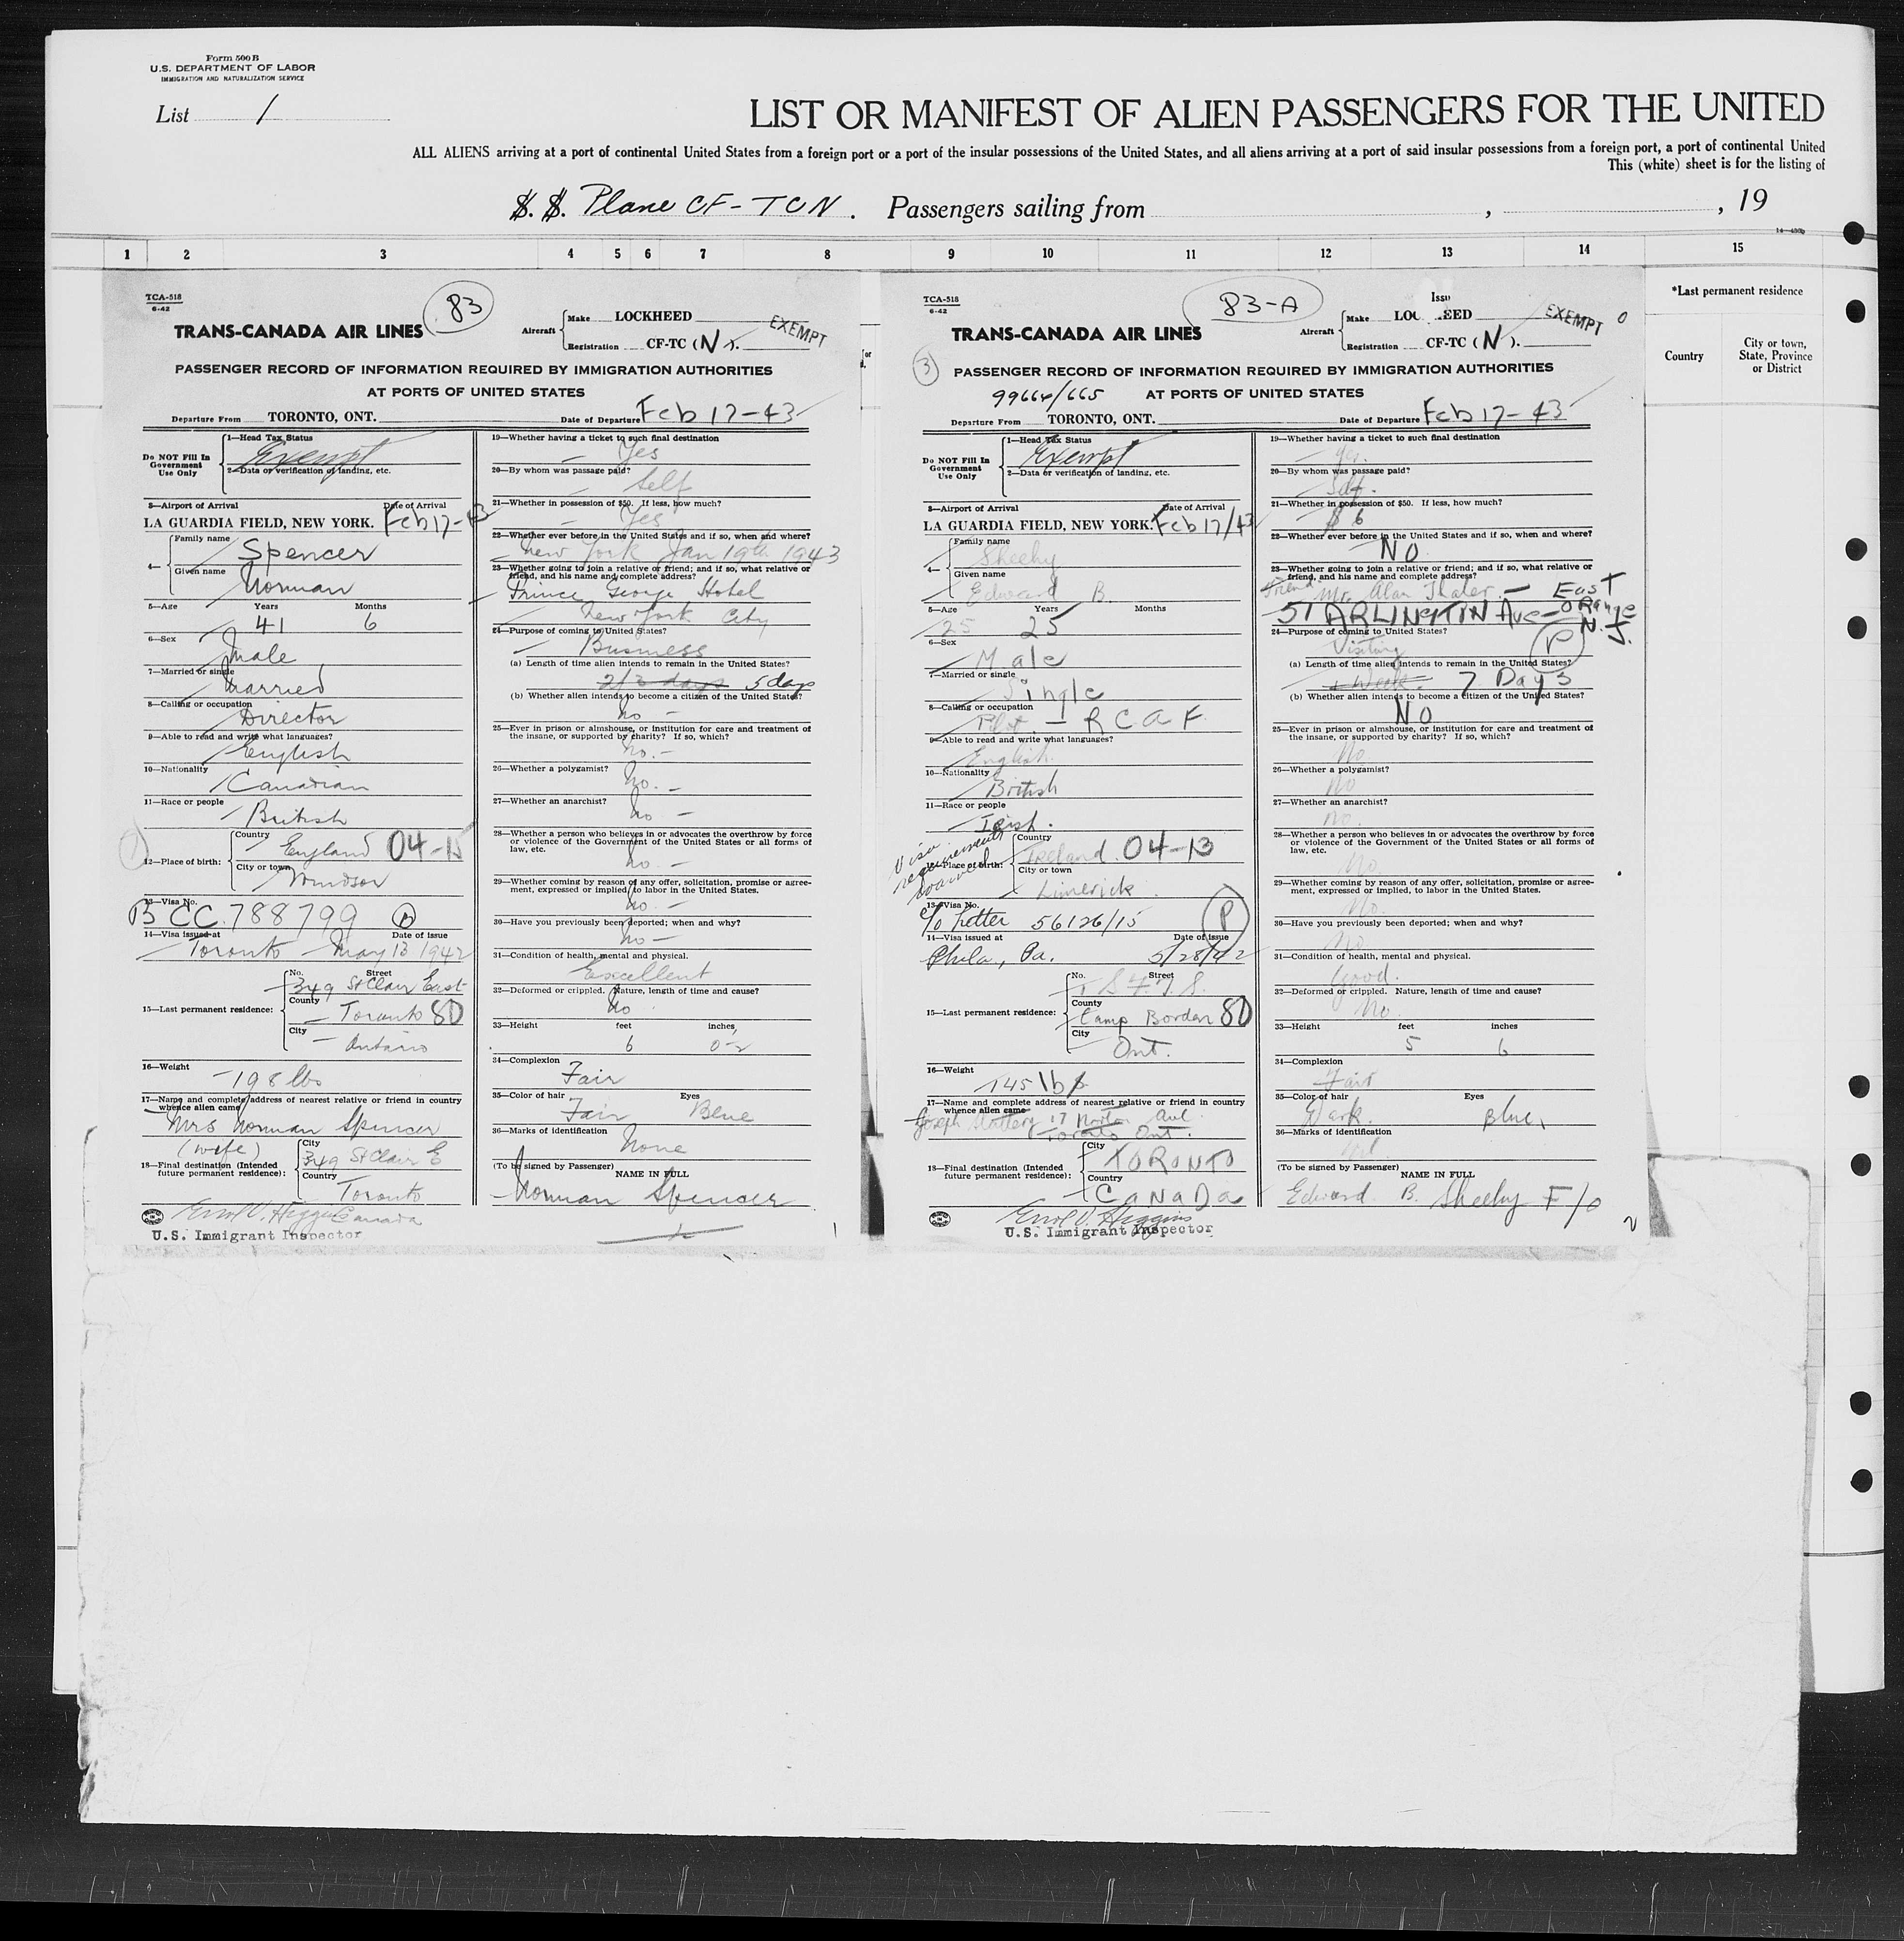 Form 500 B
U.S. DEPARTMENT OF LABOR
IMMIGRATION AND NATURALIZATION SERVICE
List 1
LIST OR MANIFEST OF ALIEN PASSENGERS FOR THE UNITED
ALL ALIENS arriving at a port of continental United States from a foreign port or a port of the insular possessions of the United States, and all aliens arriving at a port of said insular possessions from a foreign port, a port of continental United
This (white) sheet is for the listing of
S. S. Plane CF-TCN. Passengers sailing from , , 19
1 2 3 4 5 6 7 8 9 10 11 12 13 14 15
*Last permanent residence
Country
City or town, State, Province or District
TCA-518
6-42
83
TRANS-CANADA AIR LINES
Aircraft
Make LOCKHEED
Registration CF-TC (N).
EXEMPT
PASSENGER RECORD OF INFORMATION REQUIRED BY IMMIGRATION AUTHORITIES
AT PORTS OF UNITED STATES
Departure From TORONTO, ONT. Date of Departure Feb 17-43
Do NOT Fill In Government Use Only
1—Head Tax Status
Exempt
2—Data or verification of landing, etc.
3—Airport of Arrival Date of Arrival
LA GUARDIA FIELD, NEW YORK. Feb 17-43
4— Family name
Spencer
Given name
Norman
5—Age Years Months
41 6
6—Sex
Male
7—Married or single
Married
8—Calling or occupation
Director
9—Able to read and write what languages?
English
10—Nationality
Canadian
11—Race or people
British
12—Place of birth:
Country
England 04-15
City or town
Windsor
13—Visa No.
B CC 788799
14—Visa issued at Date of issue
Toronto May 13 1942
15—Last permanent residence:
No. Street
349 St Clair East
County
Toronto 80
City
Ontario
16—Weight
198 lbs
17—Name and complete address of nearest relative or friend in country whence alien came
Mrs Norman Spencer
(wife)
18—Final destination (Intended future permanent residence):
City
349 St Clair E
Country
Toronto
Canada
Errol V. Higgins
U.S. Immigrant Inspector
19—Whether having a ticket to such final destination
Yes
20—By whom was passage paid?
Self
21—Whether in possession of $50. If less, how much?
Yes
22—Whether ever before in the United States and if so, when and where?
New York Jan 19th 1943
23—Whether going to join a relative or friend; and if so, what relative or friend, and his name and complete address?
Prince George Hotel
New York City
24—Purpose of coming to United States?
Business
(a) Length of time alien intends to remain in the United States?
2/3 days 5 days
(b) Whether alien intends to become a citizen of the United States?
no -
25—Ever in prison or almshouse, or institution for care and treatment of the insane, or supported by charity? If so, which?
no. -
26—Whether a polygamist?
no. -
27—Whether an anarchist?
no -
28—Whether a person who believes in or advocates the overthrow by force or violence of the Government of the United States or all forms of law, etc.
no. -
29—Whether coming by reason of any offer, solicitation, promise or agreement, expressed or implied, to labor in the United States.
no. -
30—Have you previously been deported; when and why?
no -
31—Condition of health, mental and physical.
Excellent
32—Deformed or crippled. Nature, length of time and cause?
no
33—Height feet inches
6 0-2
34—Complexion
Fair
35—Color of hair Eyes
Fair Blue
36—Marks of identification
None
(To be signed by Passenger)
NAME IN FULL
Norman Spencer
1
TCA-518
6-42
83-A
TRANS-CANADA AIR LINES
Aircraft
Make
Registration CF-TC (N).
EXEMPT
3
PASSENGER RECORD OF INFORMATION REQUIRED BY IMMIGRATION AUTHORITIES
99664/665 AT PORTS OF UNITED STATES
Departure From TORONTO, ONT. Date of Departure Feb 17-43
Do NOT Fill In Government Use Only
1—Head Tax Status
Exempt
2—Data or verification of landing, etc.
3—Airport of Arrival Date of Arrival
LA GUARDIA FIELD, NEW YORK. Feb 17/43
4— Family name
Sheehy
Given name
Edward B.
5—Age Years Months
25 25
6—Sex
Male
7—Married or single
Single
8—Calling or occupation
Pilot - RCAF
9—Able to read and write what languages?
English
10—Nationality
British
11—Race or people
Irish.
Visa requirements waived
12—Place of birth:
Country
Ireland. 04-13
City or town
Limerick
13—Visa No.
c/o Letter 56126/15 P
14—Visa issued at Date of issue
Phila., Pa. 5/28/42
15—Last permanent residence:
No. Street
1 S.F.T.S.
County
Camp Borden 80
City
Ont.
16—Weight
145 lbs
17—Name and complete address of nearest relative or friend in country whence alien came
Joseph Slattery 17 Norton Ave.
Toronto Ont.
18—Final destination (Intended future permanent residence):
City
TORONTO
Country
CANADA
Errol V. Higgins
U.S. Immigrant Inspector
19—Whether having a ticket to such final destination
Yes.
20—By whom was passage paid?
Self.
21—Whether in possession of $50. If less, how much?
$6
22—Whether ever before in the United States and if so, when and where?
NO
23—Whether going to join a relative or friend; and if so, what relative or friend, and his name and complete address?
Friend Mr. Alan Thaler - East
51 ARLINGTIN Ave - Orange N.J.
24—Purpose of coming to United States?
Visiting P
(a) Length of time alien intends to remain in the United States?
1 Week. 7 Days
(b) Whether alien intends to become a citizen of the United States?
NO
25—Ever in prison or almshouse, or institution for care and treatment of the insane, or supported by charity? If so, which?
No
26—Whether a polygamist?
No
27—Whether an anarchist?
No.
28—Whether a person who believes in or advocates the overthrow by force or violence of the Government of the United States or all forms of law, etc.
No.
29—Whether coming by reason of any offer, solicitation, promise or agreement, expressed or implied, to labor in the United States.
No.
30—Have you previously been deported; when and why?
No.
31—Condition of health, mental and physical.
Good.
32—Deformed or crippled. Nature, length of time and cause?
No.
33—Height feet inches
5 6
34—Complexion
Fair
35—Color of hair Eyes
Dark. Blue.
36—Marks of identification
Nil.
(To be signed by Passenger)
NAME IN FULL
Edward B. Sheehy F/O
2